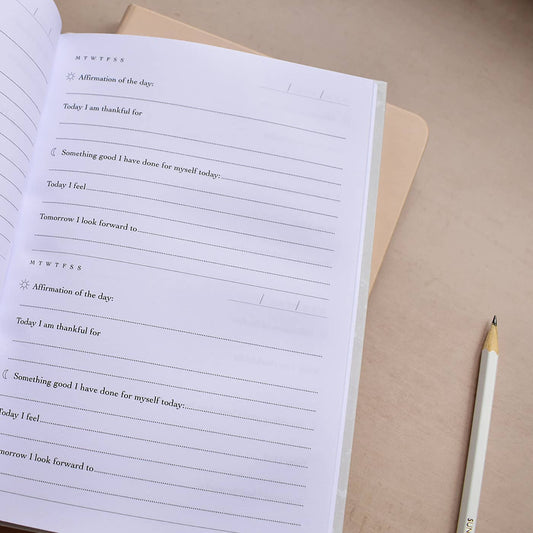 M T W T F S S
Affirmation of the day:
/ /
Today I am thankful for
Something good I have done for myself today:
Today I feel
Tomorrow I look forward to
M T W T F S S
Affirmation of the day:
/ /
Today I am thankful for
Something good I have done for myself today:
Today I feel
morrow I look forward to
SUN